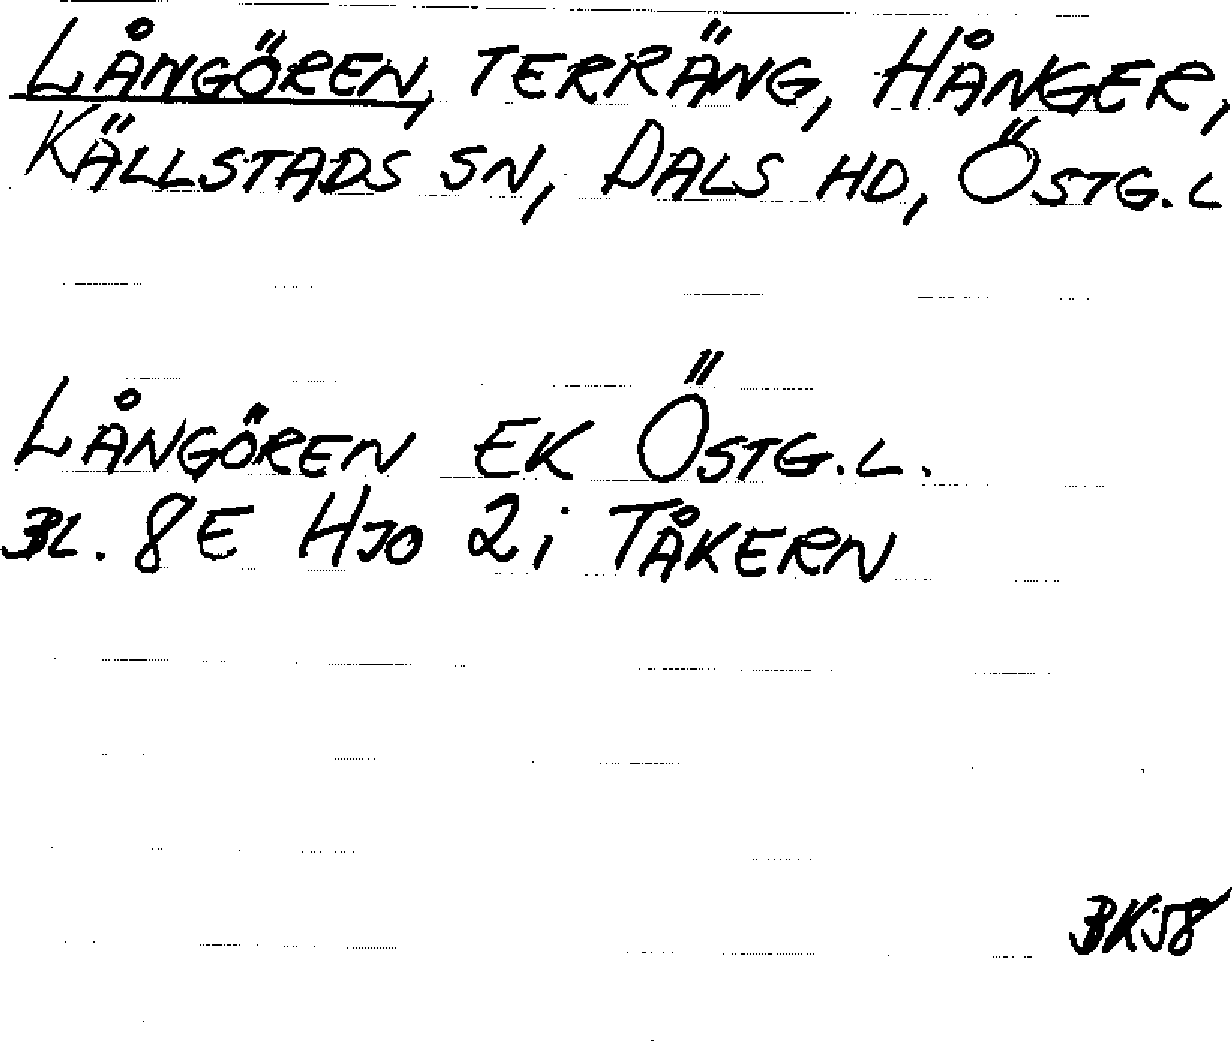 LÅNGÖREN, TERRÄNG, HÅNGER,
KÄLLSTADS SN, DALS HD, ÖSTG. L
LÅNGÖREN EK ÖSTG. L.
BL. 8E HJO 2i TÅKERN
BK58